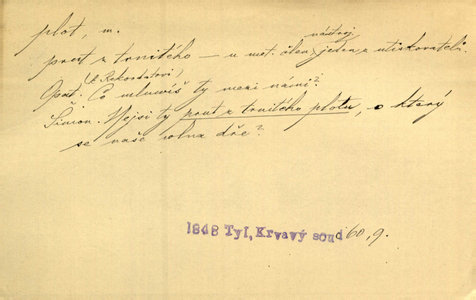 plot, m.
nástroj
prut z trnitého — u met. člen jeden z utiskovatelů.
(k Rekordatovi)
Opat. Co mluvíš ty mezi námi?
Šimon. Nejsi ty prut z trnitého plotu, o který
se naše volna dře?
1848 Tyl, Krvavý soud 60, 9.